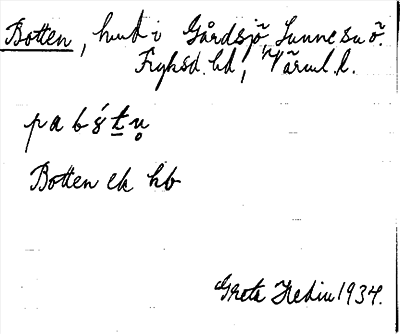 Botten, hmd i Gårdsjö, Sunne sn ö.
Fryksd. hd, Värml. l.
pa bǿtn̥
Botten ek hb
Greta Hedin 1934.